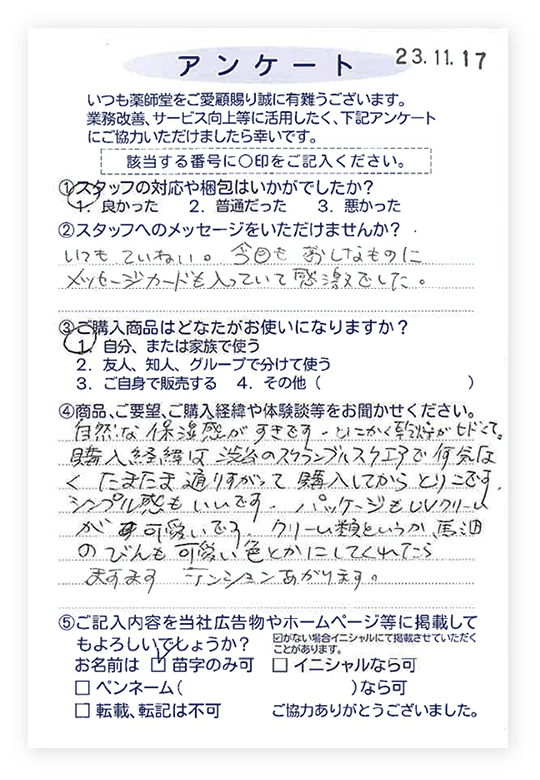 アンケート
23.11.17
いつも薬師堂をご愛顧賜り誠に有難うございます。
業務改善、サービス向上等に活用したく、下記アンケート
にご協力いただけましたら幸いです。
該当する番号に〇印をご記入ください。
①スタッフの対応や梱包はいかがでしたか?
1. 良かった 2. 普通だった 3. 悪かった
②スタッフへのメッセージをいただけませんか?
いつもていねい。今回も おしなものに
メッセージカードも入っていて感激でした。
③ご購入商品はどなたがお使いになりますか?
1. 自分、または家族で使う
2. 友人、知人、グループで分けて使う
3. ご自身で販売する 4. その他( )
④商品、ご要望、ご購入経緯や体験談等をお聞かせください。
自然な保湿感がすきです。とにかく乾燥がヒドくて。
購入経緯は渋谷のスクランブルスクエアで何気な
く たまたま通りすがって購入してからとりこです。
シンプル感もいいです。パッケージもUVクリーム
が 可愛いです。クリーム類というか、馬油
のびんも可愛い色とかにしてくれたら
ますます テンションあがります。
⑤ご記入内容を当社広告物やホームページ等に掲載して
もよろしいでしょうか?
☑がない場合イニシャルにて掲載させていただく
ことがあります。
お名前は ☑ 苗字のみ可 □ イニシャルなら可
□ ペンネーム( )なら可
□ 転載、転記は不可 ご協力ありがとうございました。